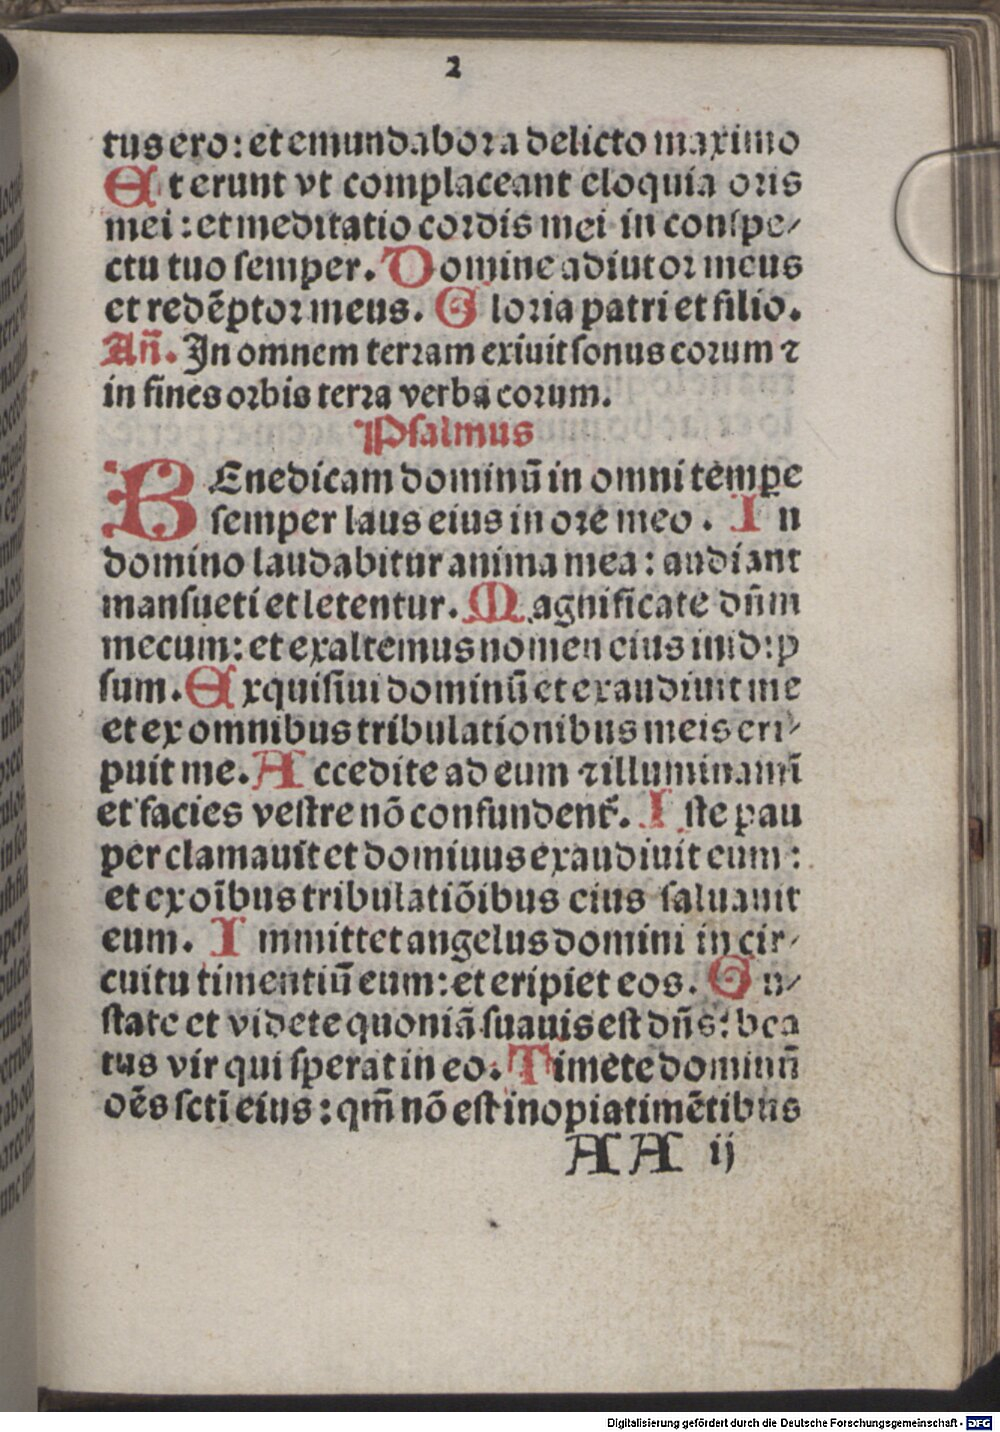 2
tus ero: et emundabor a delicto maximo
Et erunt vt complaceant eloquia oris
mei: et meditatio cordis mei in conspe/
ctu tuo semper. Domine adiutor meus
et redēptor meus. Gloria patri et filio.
Añ. In omnem terram exiuit sonus eorum ⁊
in fines orbis terra verba eorum.
Psalmus
BEnedicam dominū in omni tempe
semper laus eius in ore meo. In
domino laudabitur anima mea: audiant
mansueti et letentur. Magnificate dñm
mecum: et exaltemus nomen eius in id: p
sum. Exquisiui dominū et exaudiuit me
et ex omnibus tribulationibus meis eri/
puit me. Accedite ad eum ⁊ illuminami
et facies vestre nō confundent᷑. Iste pau
per clamauit et dominus exaudiuit eum:
et ex oībus tribulatiōibus eius saluauit
eum. Immittet angelus domini in cir/
cuitu timentiū eum: et eripiet eos. Gu/
state et videte quoniā suauis est dñs: bea
tus vir qui sperat in eo. Timete dominū
oēs scti eius: qm̄ nō est inopia timētibus
AA ij
Digitalisierung gefördert durch die Deutsche Forschungsgemeinschaft - DFG